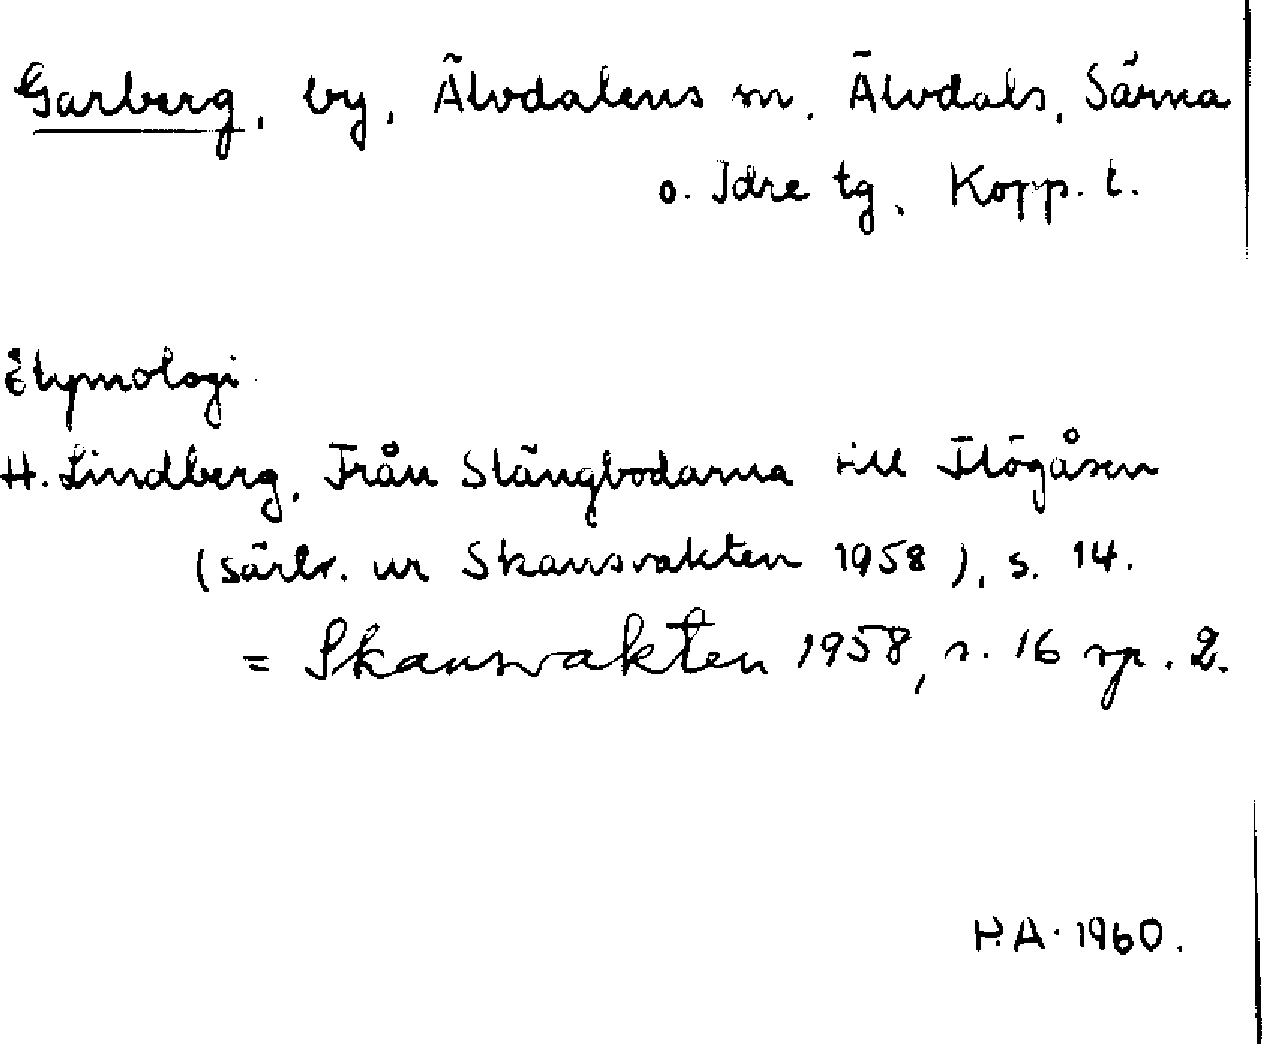 Garberg, by, Älvdalens sn, Älvdals, Särna
o. Idre tg, Kopp. l.
Etymologi
H. Lindberg, Från Stängbodarna till Flögåsen
(särtr. ur Skansvakten 1958), s. 14.
= Skansvakten 1958, s. 16 sp. 2.
H.A. 1960.